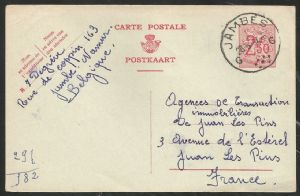 CARTE POSTALE
POSTKAART
JAMBES
2,50
rue de coppin 163
Jambes Namur
Belgique
Agences de Transaction
immobilières
De Juan Les Pins
3 Avenue de l'Estérel
Juan Les Pins
France